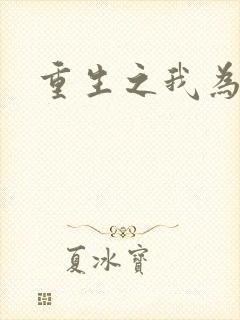 重生之我為
夏冰寶